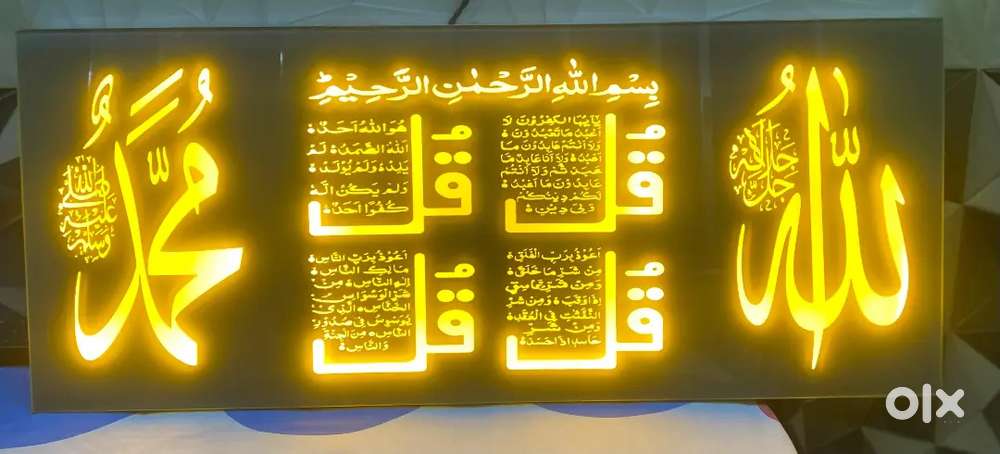 الله
جل جلاله
بِسْمِ اللهِ الرَّحْمٰنِ الرَّحِيْمِ
قُل
يايها الكفرون لا
اعبد ما تعبدون
ولا انتم عابدون ما
اعبد ولا انا عابد ما
عبدتم ولا انتم
عابدون ما اعبد
لكم دينكم
ولى دين
قُل
هو الله احد
الله الصمد لم
يلد ولم يولد
ولم يكن له
كفوا احد
قُل
اعوذ برب الفلق
من شر ما خلق
ومن شر غاسق
اذا وقب ومن شر
النفثت فى العقد
ومن شر
حاسد اذا حسد
قُل
اعوذ برب الناس
مالك الناس
اله الناس من
شر الوسواس
الخناس الذى
يوسوس فى صدور
الناس من الجنة
والناس
مُحَمَّد
صلى الله
عليه
وسلم
olx